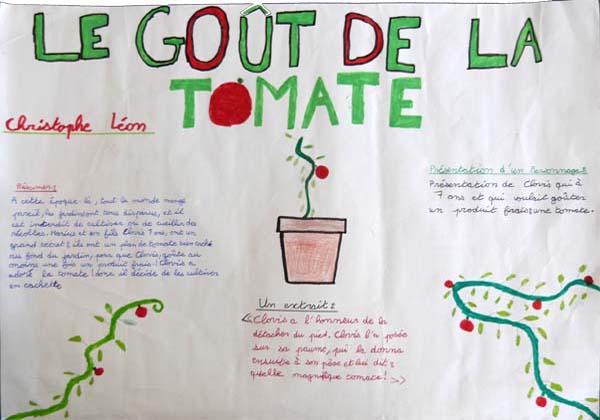 LE GOÛT DE LA
TOMATE
Christophe Léon
Résumer:
A cette époque-là, tout la monde mange
pareil, les jardins ont tous disparus, et il
est interdit de cultiver ou de cueillir des
récoltes. Marius et son fils Clovis 7 ans, ont un
grand secret: ils ont un plan de tomate bien caché
au fond du jardin, pour que Clovis, goûte au
moins une fois un produit frais! Clovis a
adoré la tomate! donc il décide de les cultiver
en cachette.
Présentation d'un Personnage:
Présentation de Clovis qui à
7 ans et qui voulait goûter
un produit frais: une tomate.
Un extrait:
<< Clovis a l'honneur de la
détacher du pied. Clovis l'a posée
sur sa paume, puis la donna
ensuite à son père et lui dit:
quelle magnifique tomate! >>